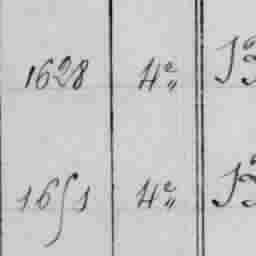 1628 4e
1651 4e